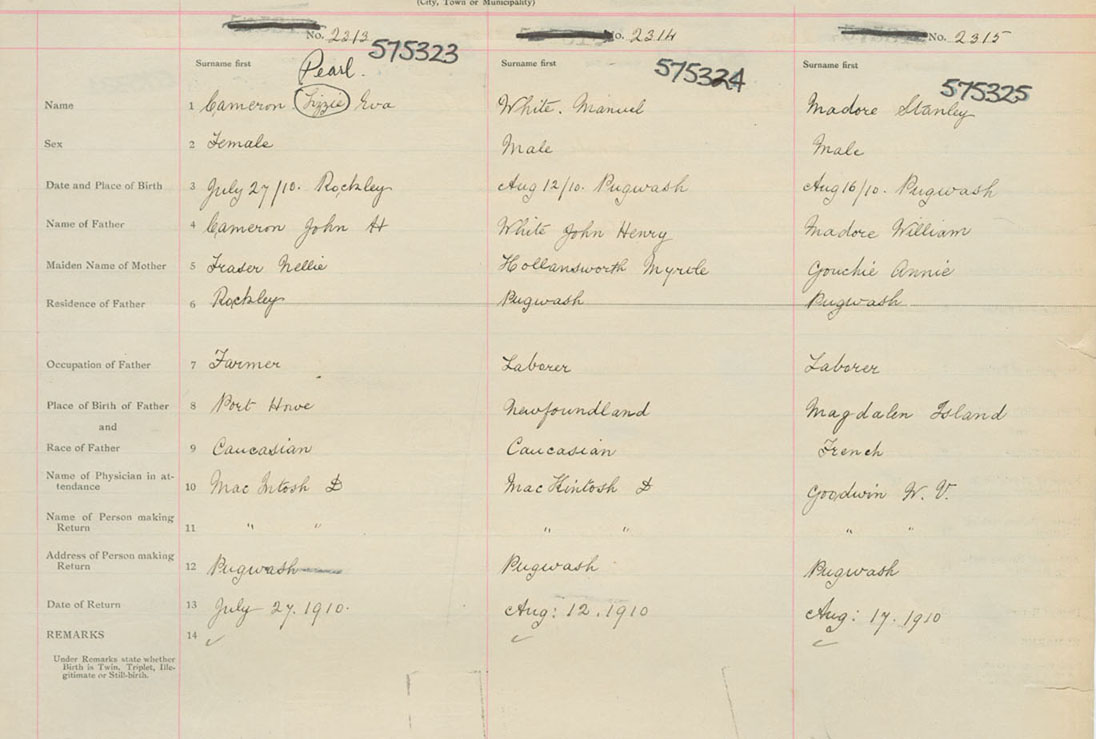 (City, Town or Municipality)
No. 2313 No. 2314 No. 2315
575323 575324 575325
Surname first Surname first Surname first
Pearl.
Name 1 Cameron Lizzie Eva White. Manuel Madore Stanley
Sex 2 Female Male Male
Date and Place of Birth 3 July 27/10. Rockley Aug 12/10. Pugwash Aug 16/10. Pugwash
Name of Father 4 Cameron John H White John Henry Madore William
Maiden Name of Mother 5 Fraser Nellie Hollansworth Myrtle Gouchie Annie
Residence of Father 6 Rockley Pugwash Pugwash
Occupation of Father 7 Farmer Laborer Laborer
Place of Birth of Father 8 Port Howe Newfoundland Magdalen Island
and
Race of Father 9 Caucasian Caucasian French
Name of Physician in at-
tendance 10 Mac Intosh D Mac Kintosh D Goodwin W. V.
Name of Person making
Return 11 " " " " " "
Address of Person making
Return 12 Pugwash Pugwash Pugwash
Date of Return 13 July 27. 1910. Aug: 12. 1910 Aug: 17. 1910
REMARKS 14
Under Remarks state whether
Birth is Twin, Triplet, Ille-
gitimate or Still-birth.